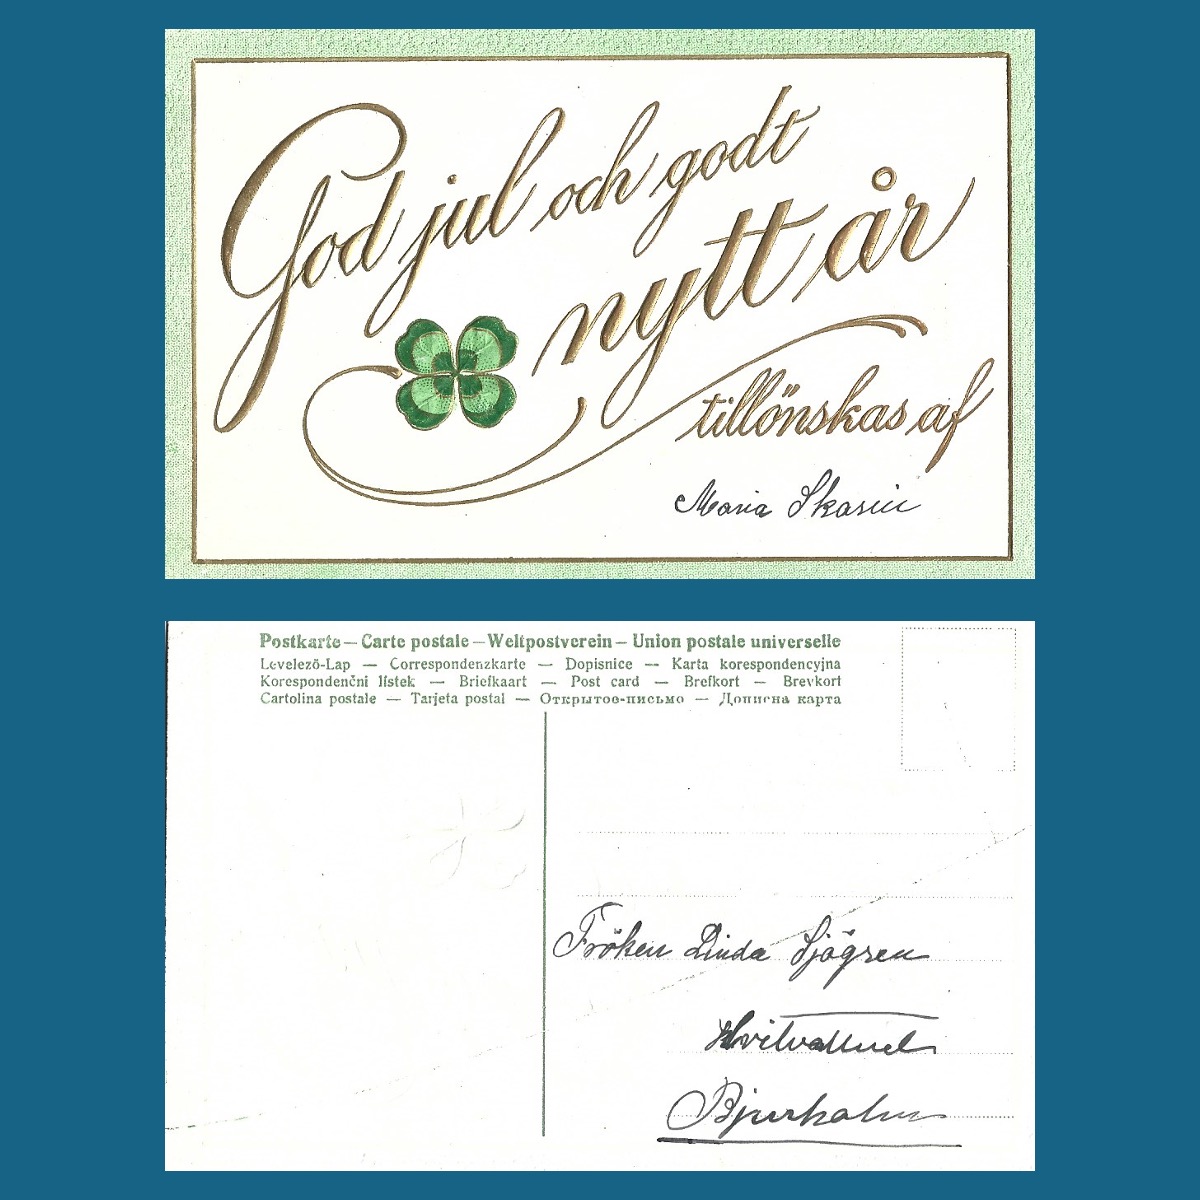 God jul och godt
nytt år
tillönskas af
Maria Skarin
Postkarte — Carte postale — Weltpostverein — Union postale universelle
Levelező-Lap — Correspondenzkarte — Dopisnice — Karta korespondencyjna
Korespondenční lístek — Briefkaart — Post card — Brefkort — Brevkort
Cartolina postale — Tarjeta postal — Открытое-письмо — Дописна карта
Fröken Linda Sjögren
Bjurholm